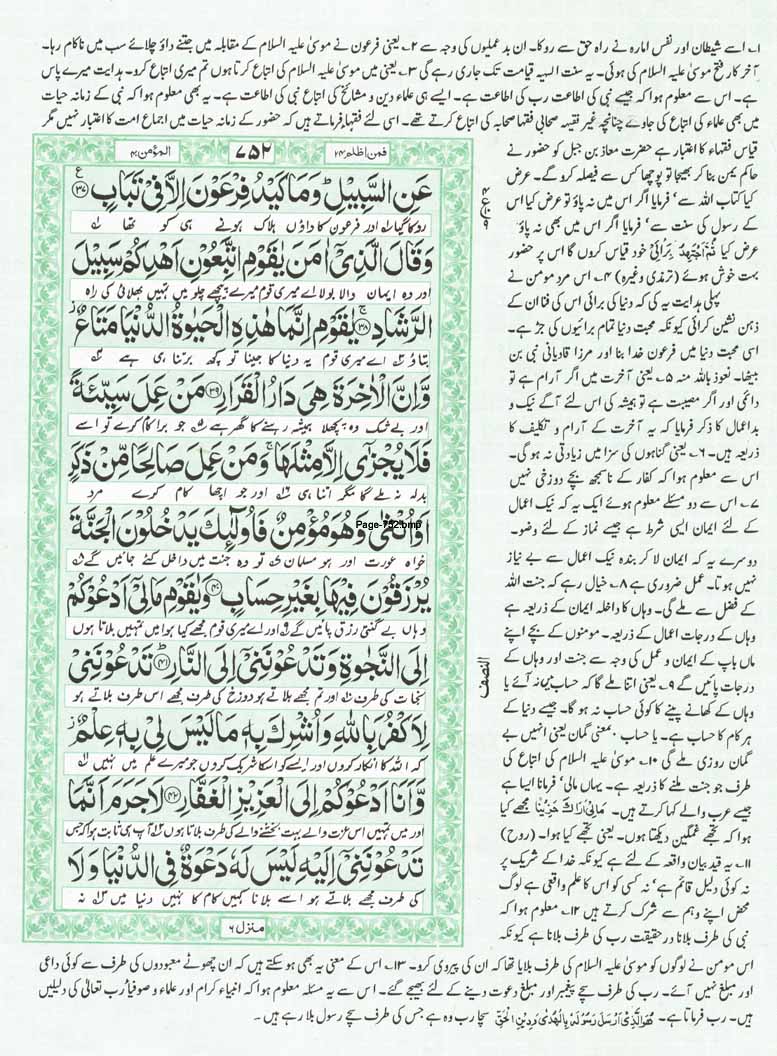 ۱؎ اسے شیطان اور نفس امارہ نے راہ حق سے روکا۔ ان بد عملیوں کی وجہ سے ۲؎ یعنی فرعون نے موسیٰ علیہ السلام کے مقابلہ میں جتنے داؤ چلائے سب میں ناکام رہا۔
آخر کار فتح موسیٰ علیہ السلام کی ہوئی۔ یہ سنت الہیہ قیامت تک جاری رہے گی ۳؎ یعنی میں موسیٰ علیہ السلام کی اتباع کرتا ہوں تم میری اتباع کرو۔ ہدایت میرے پاس
ہے۔ اس سے معلوم ہوا کہ جیسے نبی کی اطاعت رب کی اطاعت ہے۔ ایسے ہی علماء دین و مشائخ کی اتباع نبی کی اطاعت ہے۔ یہ بھی معلوم ہوا کہ نبی کے زمانہ حیات
میں بھی علماء کی اتباع کی جاوے چنانچہ غیر فقیہ صحابی فقہا صحابہ کی اتباع کرتے تھے۔ اسی لئے فقہا فرماتے ہیں کہ حضور کے زمانہ حیات میں اجماع امت کا اعتبار نہیں مگر
قیاس فقہاء کا اعتبار ہے حضرت معاذ بن جبل کو حضور نے
حاکم یمن بنا کر بھیجا تو پوچھا کس سے فیصلہ کرو گے۔ عرض
کیا کتاب اللہ سے‘ فرمایا اگر اس میں نہ پاؤ تو عرض کیا اس
کے رسول کی سنت سے‘ فرمایا اگر اس میں بھی نہ پاؤ
عرض کیا ثُمَّ اَجْتَهِدُ بِرَائِیْ خود قیاس کروں گا اس پر حضور
بہت خوش ہوئے (ترمذی وغیرہ) ۴؎ اس مرد مومن نے
پہلی ہدایت یہ کی کہ دنیا کی برائی اس کی فنا ان کے
ذہن نشین کرائی کیونکہ محبت دنیا تمام برائیوں کی جڑ ہے۔
اسی محبت دنیا میں فرعون خدا بنا اور مرزا قادیانی نبی بن
بیٹھا۔ نعوذ باللہ منہ ۵؎ یعنی آخرت میں اگر آرام ہے تو
دائمی اور اگر مصیبت ہے تو ہمیشہ کی اس لئے آگے نیک و
بد اعمال کا ذکر فرمایا کہ یہ آخرت کے آرام و تکلیف کا
ذریعہ ہیں۔ ۶؎ یعنی گناہوں کی سزا میں زیادتی نہ ہو گی۔
اس سے معلوم ہوا کہ کفار کے ناسمجھ بچے دوزخی نہیں
۷؎ اس سے دو مسئلے معلوم ہوئے ایک یہ کہ نیک اعمال
کے لئے ایمان ایسی شرط ہے جیسے نماز کے لئے وضو۔
دوسرے یہ کہ ایمان لا کر بندہ نیک اعمال سے بے نیاز
نہیں ہوتا۔ عمل ضروری ہے ۸؎ خیال رہے کہ جنت اللہ
کے فضل سے ملے گی۔ وہاں کا داخلہ ایمان کے ذریعہ ہے
وہاں کے درجات اعمال کے ذریعہ۔ مومنوں کے بچے اپنے
ماں باپ کے ایمان و عمل کی وجہ سے جنت اور وہاں کے
درجات پائیں گے ۹؎ یعنی اتنا ملے گا کہ حساب میں نہ آئے یا
وہاں کے کھانے پینے کا کوئی حساب نہ ہو گا۔ جیسے دنیا کے
ہر کام کا حساب ہے۔ یا حساب ، معنی گمان یعنی انہیں بے
گمان روزی ملے گی ۱۰؎ موسیٰ علیہ السلام کی اتباع کی
طرف جو جنت ملنے کا ذریعہ ہے۔ یہاں مالی‘ فرمانا ایسا ہے
جیسے عرب والے کہا کرتے ہیں۔ مَالِیْ اَرَاكَ حَزِیْنًا مجھے کیا
ہوا کہ تجھے غمگین دیکھتا ہوں۔ یعنی تجھے کیا ہوا۔ (روح)
۱۱؎ یہ قید بیان واقعہ کے لئے ہے کیونکہ خدا کے شریک پر
نہ کوئی دلیل قائم ہے‘ نہ کسی کو اس کا علم واقعی ہے لوگ
محض اپنے وہم سے شرک کرتے ہیں ۱۲؎ معلوم ہوا کہ
نبی کی طرف بلانا در حقیقت رب کی طرف بلانا ہے کیونکہ
فمن اظلم ۲۴
۷۵۲
المؤمن ۴۰
عَنِ السَّبِیْلِ ؕ وَمَا كَیْدُ فِرْعَوْنَ اِلَّا فِیْ تَبَابٍ ﴿۳۷﴾ ع
روکا گیا ۱؎ اور فرعون کا داؤں ہلاک ہونے ہی کو تھا ۲؎
وَقَالَ الَّذِیْۤ اٰمَنَ یٰقَوْمِ اتَّبِعُوْنِ اَهْدِكُمْ سَبِیْلَ
اور وہ ایمان والا بولا اے میری قوم میرے پیچھے چلو میں تمہیں بھلائی کی راہ
الرَّشَادِ ﴿۳۸﴾ یٰقَوْمِ اِنَّمَا هٰذِهِ الْحَیٰوةُ الدُّنْیَا مَتَاعٌ ز
بتاؤں ۳؎ اے میری قوم یہ دنیا کا جینا تو کچھ برتنا ہی ہے ۴؎
وَّاِنَّ الْاٰخِرَةَ هِیَ دَارُ الْقَرَارِ ﴿۳۹﴾ مَنْ عَمِلَ سَیِّئَةً
اور بے شک وہ پچھلا ہمیشہ رہنے کا گھر ہے ۵؎ جو برا کام کرے تو اسے
فَلَا یُجْزٰۤی اِلَّا مِثْلَهَا ۚ وَمَنْ عَمِلَ صَالِحًا مِّنْ ذَكَرٍ
بدلہ نہ ملے گا مگر اتنا ہی ۶؎ اور جو اچھا کام کرے مرد
اَوْ اُنْثٰی وَهُوَ مُؤْمِنٌ فَاُولٰٓئِكَ یَدْخُلُوْنَ الْجَنَّةَ
Page-752.bmp
خواہ عورت اور ہو مسلمان ۷؎ تو وہ جنت میں داخل کئے جائیں گے ۸؎
یُرْزَقُوْنَ فِیْهَا بِغَیْرِ حِسَابٍ ﴿۴۰﴾ وَیٰقَوْمِ مَالِیْۤ اَدْعُوْكُمْ
وہاں بے گنتی رزق پائیں گے ۹؎ اور اے میری قوم مجھے کیا ہوا میں تمہیں بلاتا ہوں
اِلَی النَّجٰوةِ وَتَدْعُوْنَنِیْۤ اِلَی النَّارِ ﴿۴۱﴾ تَدْعُوْنَنِیْ
نجات کی طرف ۱۰؎ اور تم مجھے بلاتے ہو دوزخ کی طرف مجھے اس طرف بلاتے ہو
لِاَكْفُرَ بِاللّٰهِ وَاُشْرِكَ بِهٖ مَا لَیْسَ لِیْ بِهٖ عِلْمٌ ز
کہ اللہ کا انکار کروں اور ایسے کو اسکا شریک کروں جو میرے علم میں نہیں ۱۱؎
وَّاَنَا اَدْعُوْكُمْ اِلَی الْعَزِیْزِ الْغَفَّارِ ﴿۴۲﴾ لَا جَرَمَ اَنَّمَا
اور میں تمہیں اس عزت والے بہت بخشنے والے کی طرف بلاتا ہوں ۱۲؎ آپ ہی ثابت ہوا کہ جس
تَدْعُوْنَنِیْۤ اِلَیْهِ لَیْسَ لَهٗ دَعْوَةٌ فِی الدُّنْیَا وَلَا
کی طرف مجھے بلاتے ہو اسے بلانا کہیں کام کا نہیں دنیا میں نہ
منزل ۶
النصف
اس مومن نے لوگوں کو موسیٰ علیہ السلام کی طرف بلایا تھا کہ ان کی پیروی کرو۔ ۱۳؎ اس کے معنی یہ بھی ہو سکتے ہیں کہ ان جھوٹے معبودوں کی طرف سے کوئی داعی
اور مبلغ نہیں آئے۔ رب کی طرف سے سچے پیغمبر اور مبلغ دعوت دینے کے لئے بھیجے گئے۔ اس سے یہ مسئلہ معلوم ہوا کہ انبیاء کرام اور علماء و صوفیاء رب تعالیٰ کی دلیلیں
ہیں۔ رب فرماتا ہے۔ هُوَ الَّذِیْۤ اَرْسَلَ رَسُوْلَهٗ بِالْهُدٰی وَدِیْنِ الْحَقِّ سچا رب وہ ہے جس کی طرف سچے رسول بلا رہے ہیں۔